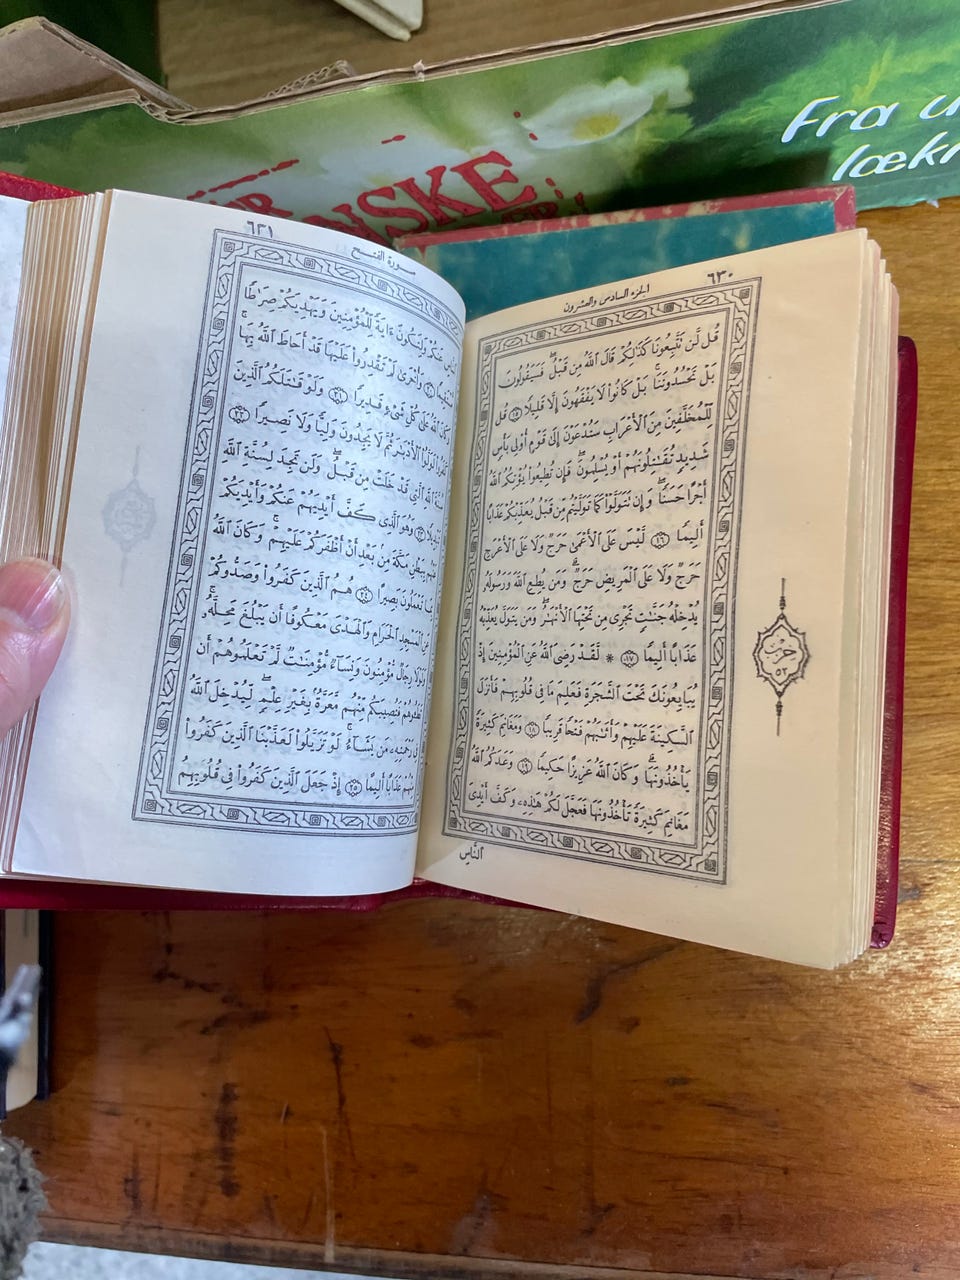 Fra
٦٣٠
الجزء السادس والعشرون
قُل لَّن تَتَّبِعُونَا كَذَٰلِكُمْ قَالَ ٱللَّهُ مِن قَبْلُ ۖ فَسَيَقُولُونَ
بَلْ تَحْسُدُونَنَا ۚ بَلْ كَانُوا۟ لَا يَفْقَهُونَ إِلَّا قَلِيلًا ١٥ قُل
لِّلْمُخَلَّفِينَ مِنَ ٱلْأَعْرَابِ سَتُدْعَوْنَ إِلَىٰ قَوْمٍ أُو۟لِى بَأْسٍ
شَدِيدٍ تُقَٰتِلُونَهُمْ أَوْ يُسْلِمُونَ ۖ فَإِن تُطِيعُوا۟ يُؤْتِكُمُ ٱللَّهُ
أَجْرًا حَسَنًا ۖ وَإِن تَتَوَلَّوْا۟ كَمَا تَوَلَّيْتُم مِّن قَبْلُ يُعَذِّبْكُمْ عَذَابًا
أَلِيمًا ١٦ لَّيْسَ عَلَى ٱلْأَعْمَىٰ حَرَجٌ وَلَا عَلَى ٱلْأَعْرَجِ
حَرَجٌ وَلَا عَلَى ٱلْمَرِيضِ حَرَجٌ ۗ وَمَن يُطِعِ ٱللَّهَ وَرَسُولَهُۥ
يُدْخِلْهُ جَنَّٰتٍ تَجْرِى مِن تَحْتِهَا ٱلْأَنْهَٰرُ ۖ وَمَن يَتَوَلَّ يُعَذِّبْهُ
عَذَابًا أَلِيمًا ١٧ * لَّقَدْ رَضِىَ ٱللَّهُ عَنِ ٱلْمُؤْمِنِينَ إِذْ
يُبَايِعُونَكَ تَحْتَ ٱلشَّجَرَةِ فَعَلِمَ مَا فِى قُلُوبِهِمْ فَأَنزَلَ
ٱلسَّكِينَةَ عَلَيْهِمْ وَأَثَٰبَهُمْ فَتْحًا قَرِيبًا ١٨ وَمَغَانِمَ كَثِيرَةً
يَأْخُذُونَهَا ۗ وَكَانَ ٱللَّهُ عَزِيزًا حَكِيمًا ١٩ وَعَدَكُمُ ٱللَّهُ
مَغَانِمَ كَثِيرَةً تَأْخُذُونَهَا فَعَجَّلَ لَكُمْ هَٰذِهِۦ وَكَفَّ أَيْدِىَ
ٱلنَّاسِ
حزب
٥٢
٦٣١
سورة الفتح
عَنكُمْ وَلِتَكُونَ ءَايَةً لِّلْمُؤْمِنِينَ وَيَهْدِيَكُمْ صِرَٰطًا
٢٠ وَأُخْرَىٰ لَمْ تَقْدِرُوا۟ عَلَيْهَا قَدْ أَحَاطَ ٱللَّهُ بِهَا ۚ
وَكَانَ ٱللَّهُ عَلَىٰ كُلِّ شَىْءٍ قَدِيرًا ٢١ وَلَوْ قَٰتَلَكُمُ ٱلَّذِينَ
لَوَلَّوُا۟ ٱلْأَدْبَٰرَ ثُمَّ لَا يَجِدُونَ وَلِيًّا وَلَا نَصِيرًا ٢٢
ٱللَّهِ ٱلَّتِى قَدْ خَلَتْ مِن قَبْلُ ۖ وَلَن تَجِدَ لِسُنَّةِ ٱللَّهِ
٢٣ وَهُوَ ٱلَّذِى كَفَّ أَيْدِيَهُمْ عَنكُمْ وَأَيْدِيَكُمْ
بِبَطْنِ مَكَّةَ مِنۢ بَعْدِ أَنْ أَظْفَرَكُمْ عَلَيْهِمْ ۚ وَكَانَ ٱللَّهُ
بِمَا تَعْمَلُونَ بَصِيرًا ٢٤ هُمُ ٱلَّذِينَ كَفَرُوا۟ وَصَدُّوكُمْ
عَنِ ٱلْمَسْجِدِ ٱلْحَرَامِ وَٱلْهَدْىَ مَعْكُوفًا أَن يَبْلُغَ مَحِلَّهُۥ ۚ
وَلَوْلَا رِجَالٌ مُّؤْمِنُونَ وَنِسَآءٌ مُّؤْمِنَٰتٌ لَّمْ تَعْلَمُوهُمْ أَن
فَتُصِيبَكُم مِّنْهُم مَّعَرَّةٌۢ بِغَيْرِ عِلْمٍ ۖ لِّيُدْخِلَ ٱللَّهُ
فِى رَحْمَتِهِۦ مَن يَشَآءُ ۚ لَوْ تَزَيَّلُوا۟ لَعَذَّبْنَا ٱلَّذِينَ كَفَرُوا۟
مِنْهُمْ عَذَابًا أَلِيمًا ٢٥ إِذْ جَعَلَ ٱلَّذِينَ كَفَرُوا۟ فِى قُلُوبِهِمُ